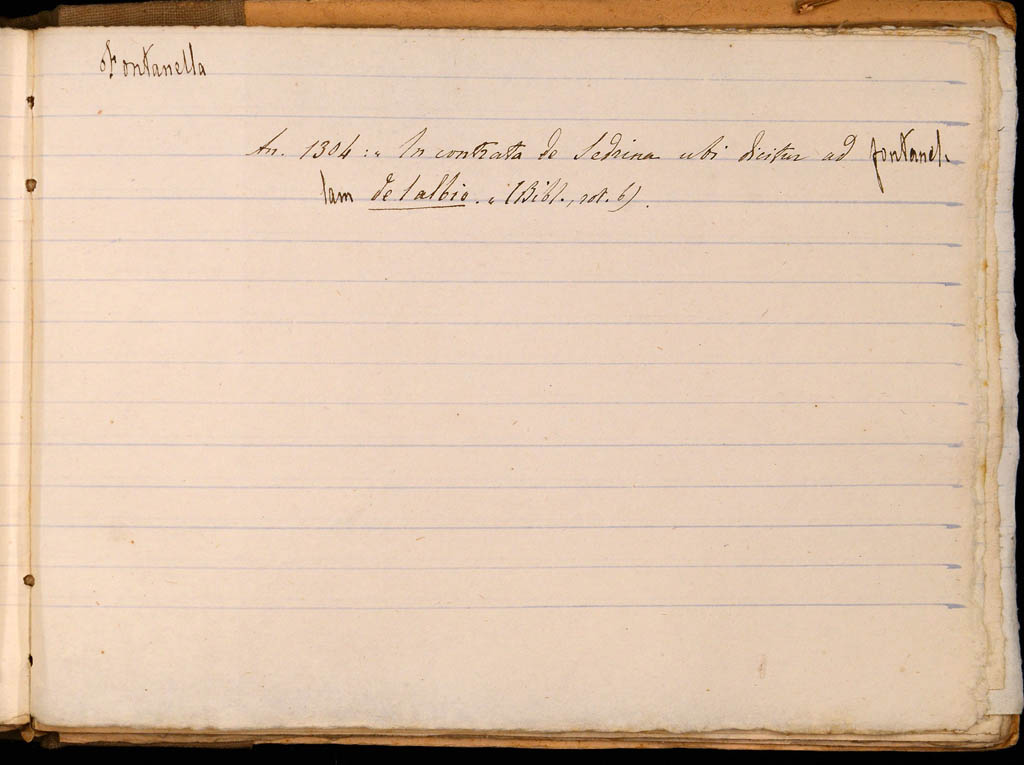 Fontanella
An. 1304: „ In contrata de Sedrina ubi dicitur ad fontanel-
lam de l albio. „ (Bibl., rot. 6).